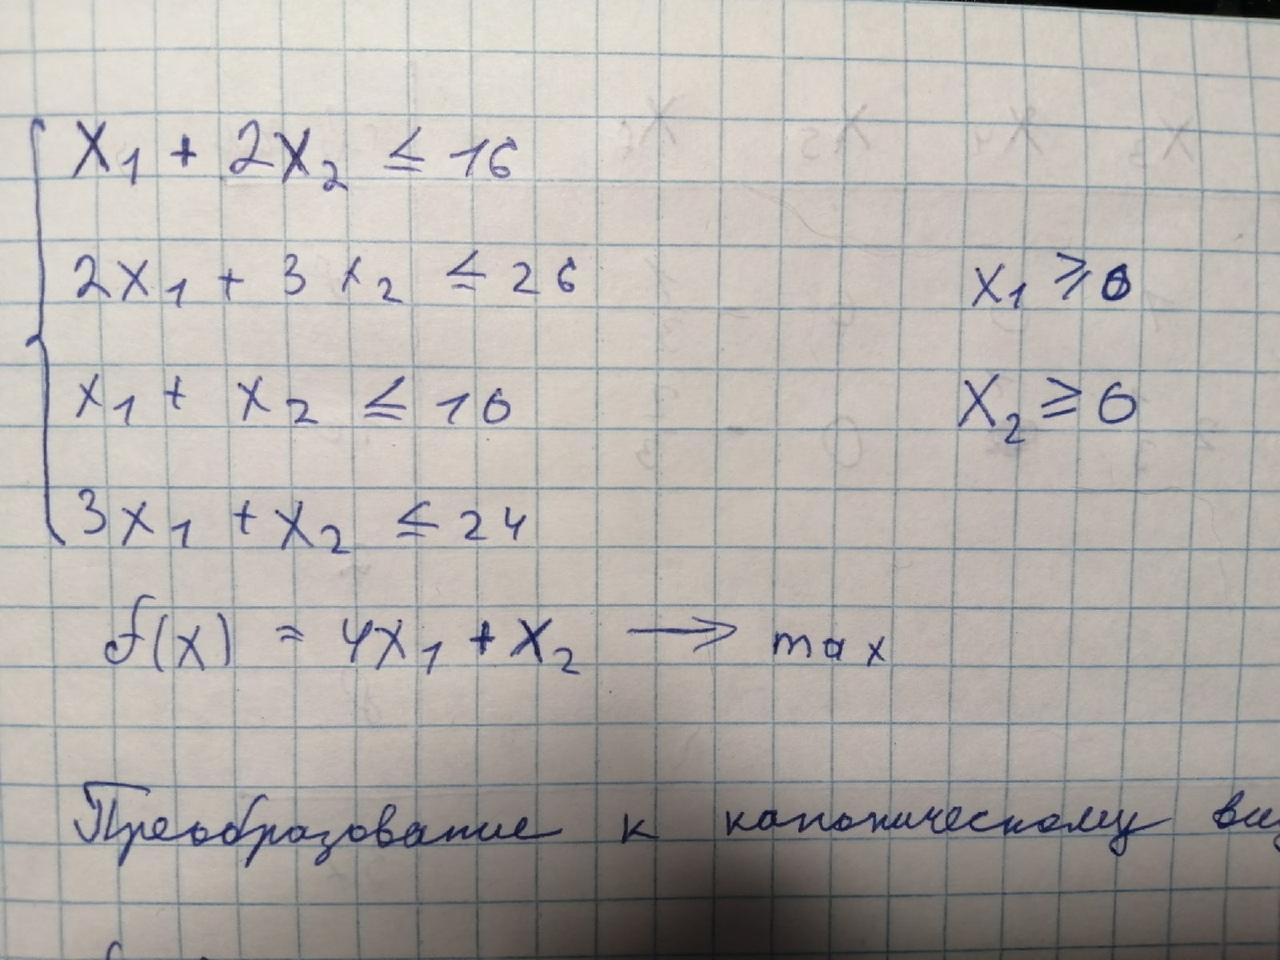 x₁ + 2x₂ ≤ 16
2x₁ + 3x₂ ≤ 26
x₁ ≥ 0
x₁ + x₂ ≤ 10
x₂ ≥ 0
3x₁ + x₂ ≤ 24
f(x) = 4x₁ + x₂ → max
Преобразование к каноническому